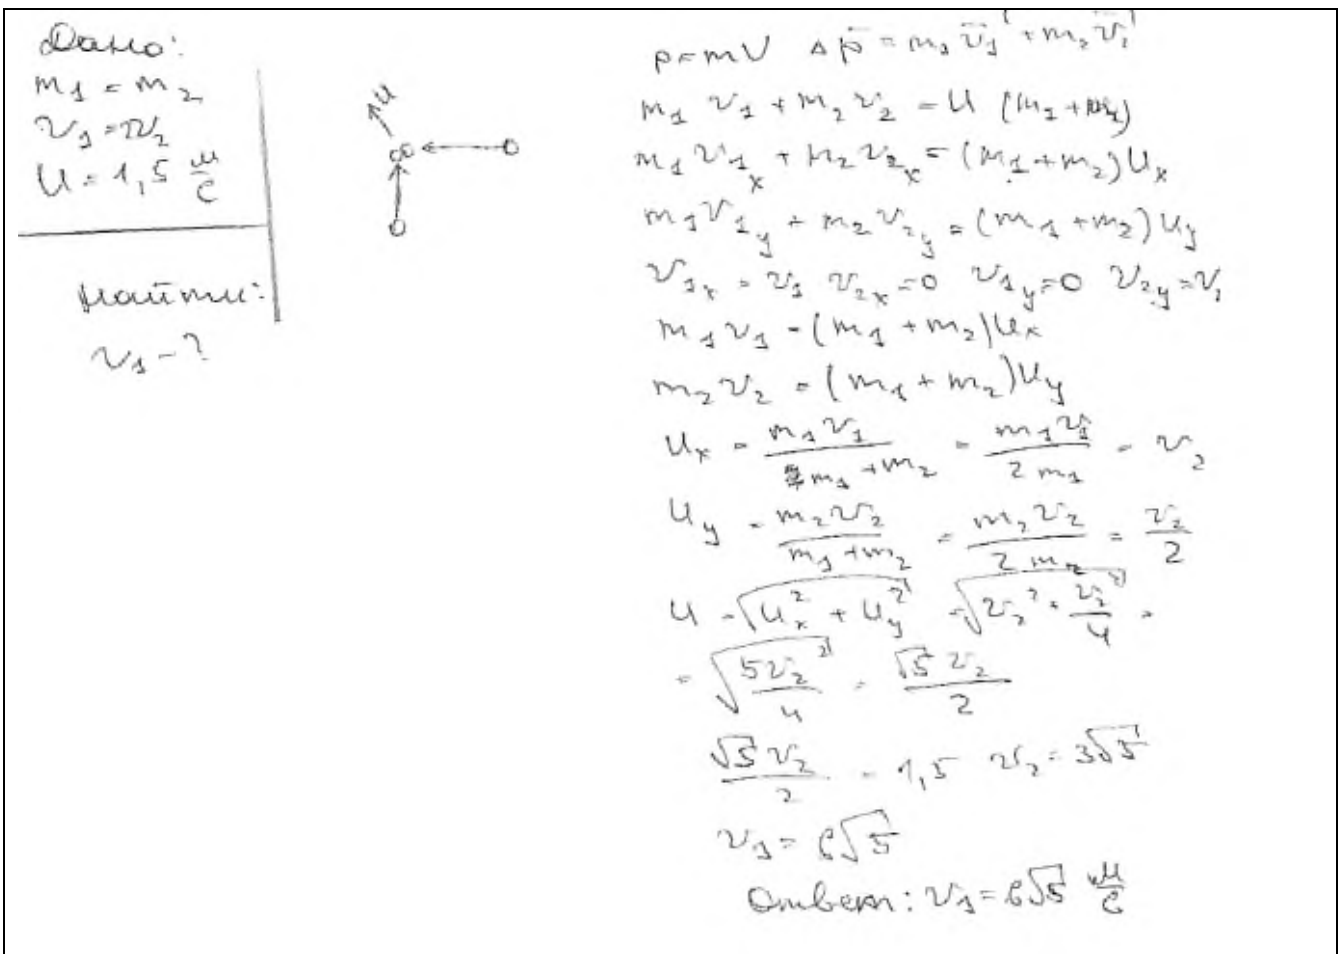 Дано:
m₁ = m₂
v₁ = 2v₂
U = 1,5 м/с
Найти:
v₁ - ?
u
p = mV Δp̄ = m₁v̄₁' + m₂v̄₂'
m₁ v₁ + m₂ v₂ = U (m₁ + m₂)
m₁v₁ₓ + m₂v₂ₓ = (m₁ + m₂)Uₓ
m₁v₁y + m₂v₂y = (m₁ + m₂)Uy
v₁ₓ = v₁ v₂ₓ = 0 v₁y = 0 v₂y = v₂
m₁v₁ = (m₁ + m₂)Uₓ
m₂v₂ = (m₁ + m₂)Uy
Uₓ = m₁v₁/(m₁ + m₂) = m₁v₁/(2m₁) = v₂
Uy = m₂v₂/(m₁ + m₂) = m₂v₂/(2m₂) = v₂/2
U = √(Uₓ² + Uy²) = √(v₂² + v₂²/4) =
= √(5v₂²/4) = √5 v₂/2
√5 v₂/2 = 1,5 v₂ = 3√5
v₁ = 6√5
Ответ: v₁ = 6√5 м/с